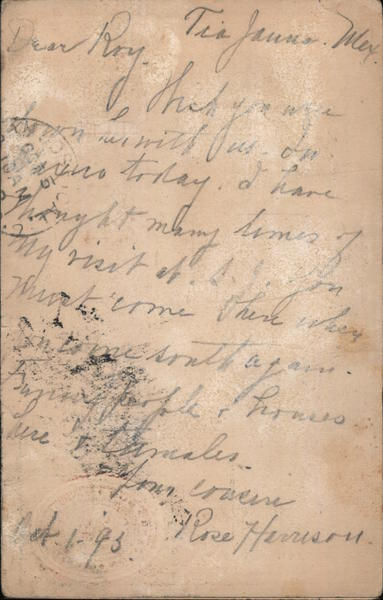 Tia Juana. Mex
Dear Roy.
Wish you were
down here with us. In
today. I have
thought many times of
my visit at S. J. You
must come there when
you come south again.
Funny people & houses
here & tamales.
Your cousin
Oct. 1-93. Rose Harrison.